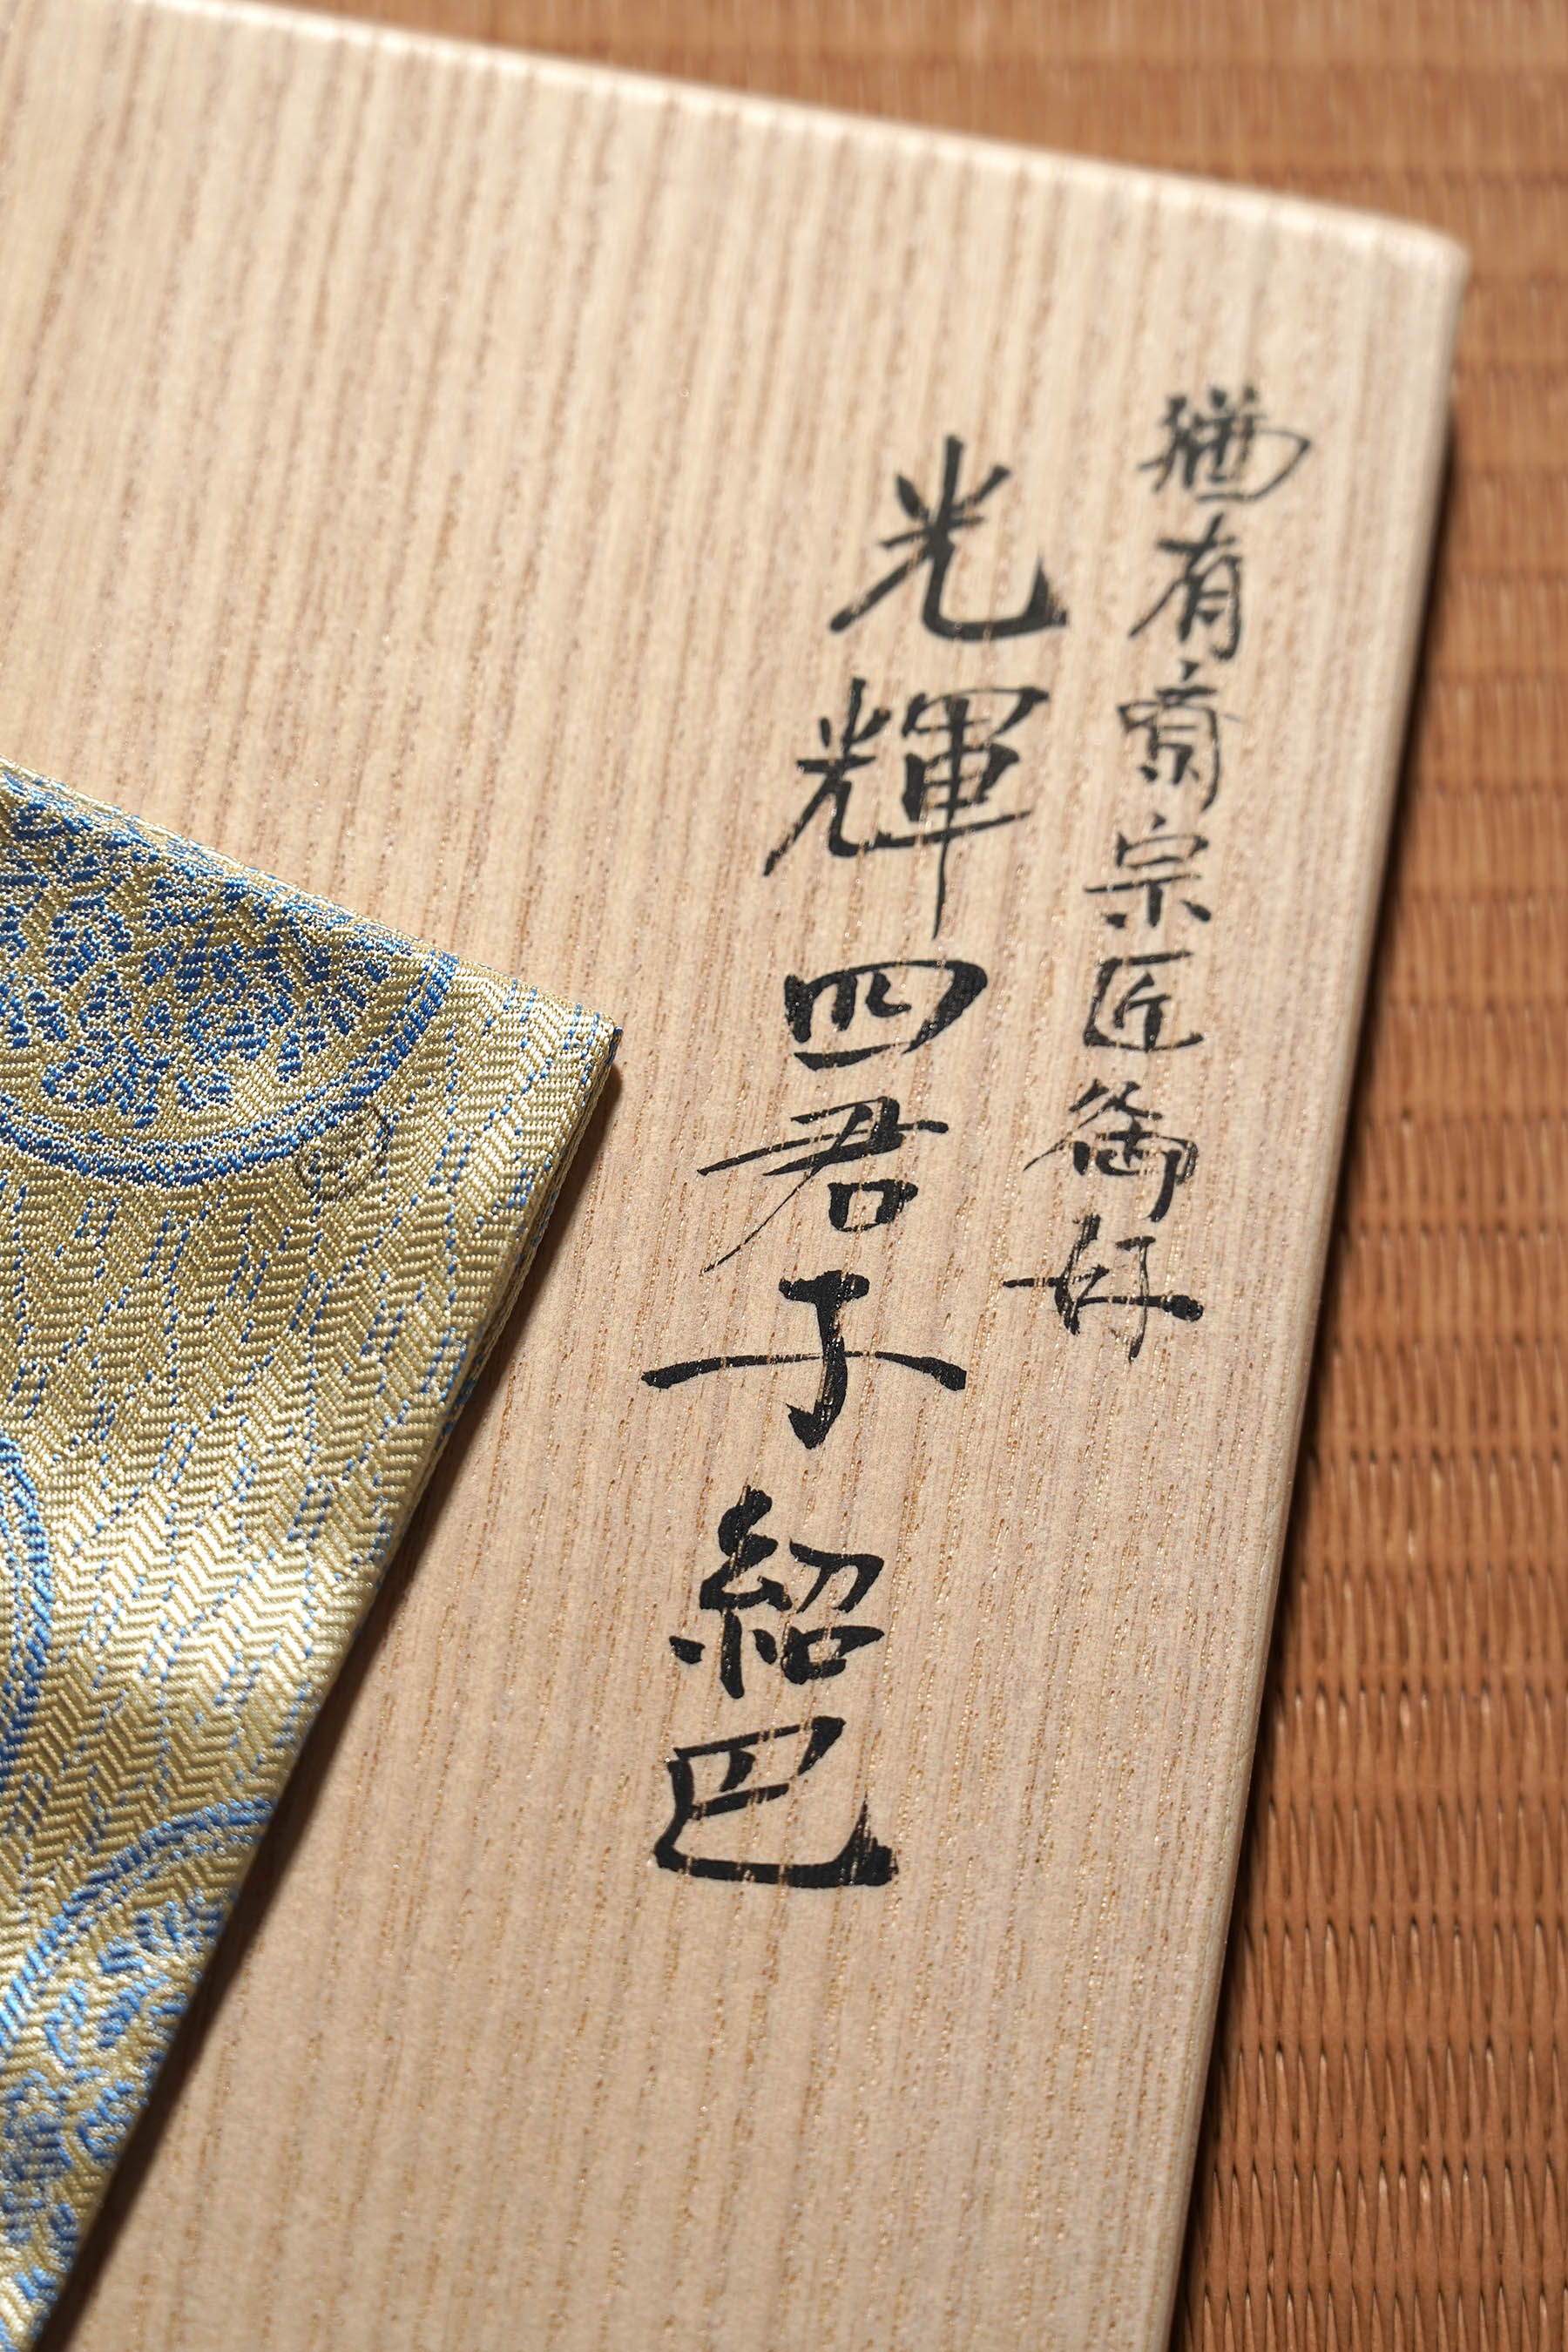 猶有斎宗匠御好
光輝四君子紹巴